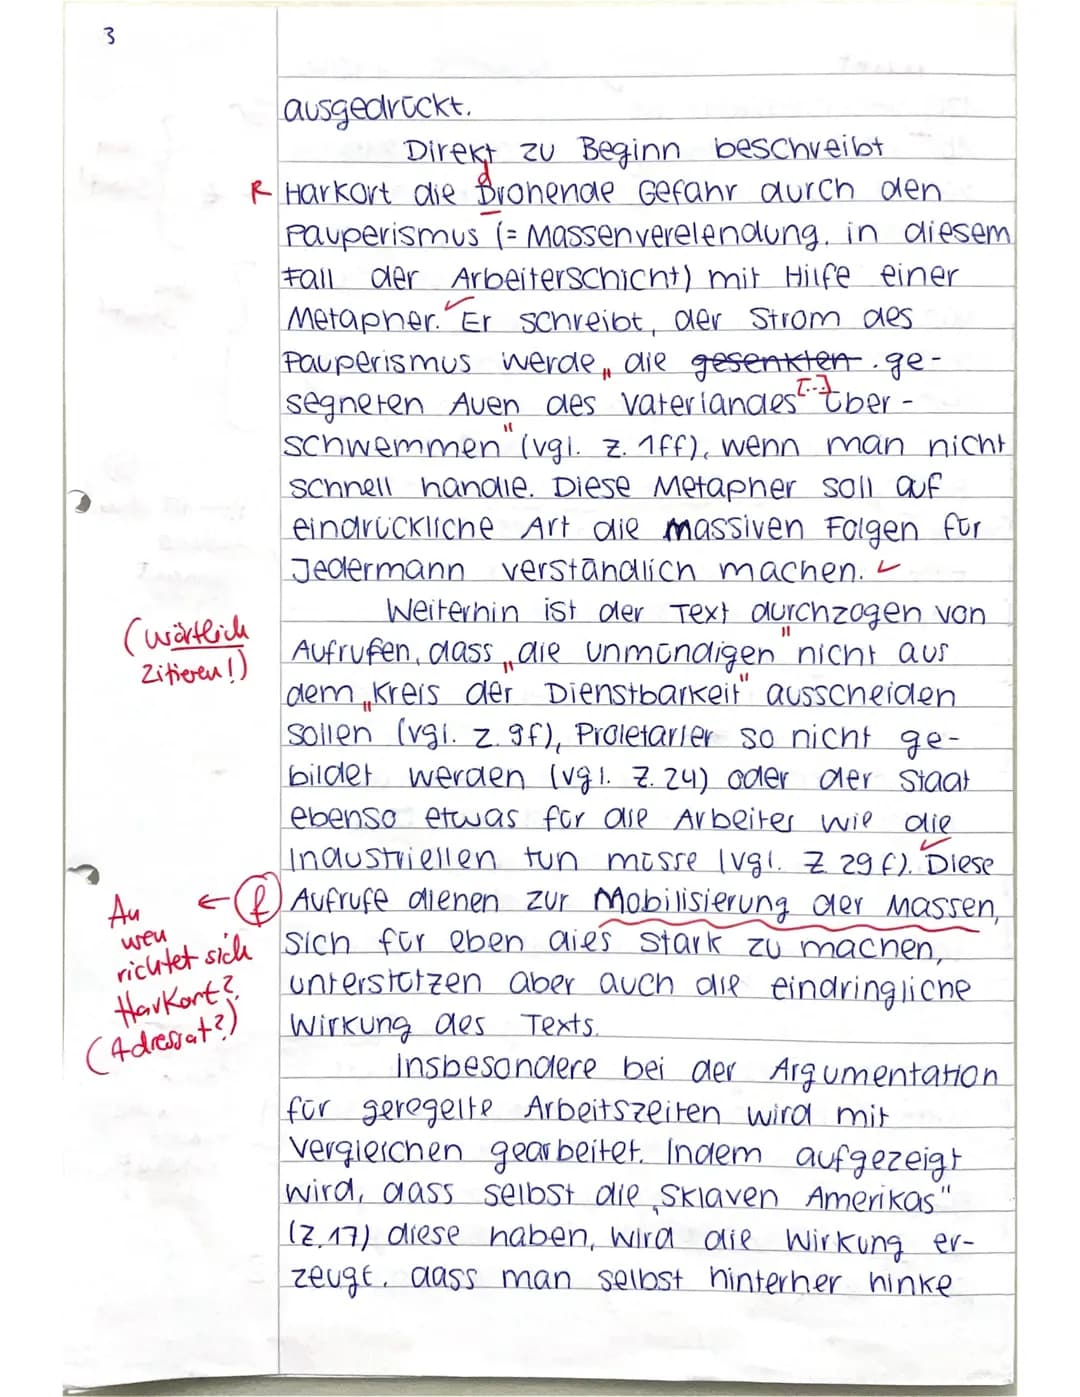 3
ausgedrückt.
Direkt zu Beginn beschreibt
R Harkort die Drohende Gefahr durch den
d
Pauperismus (= Massenverelendung, in diesem
Fall der Arbeiterschicht) mit Hilfe einer
Metapher. Er schreibt, der Strom des
Pauperismus werde „die gesenkten ge-
segneten Auen des Vaterlandes [...] über-
schwemmen" (vgl. Z. 1ff), wenn man nicht
schnell handle. Diese Metapher soll auf
eindrückliche Art die massiven Folgen für
Jedermann verständlich machen.
Weiterhin ist der Text durchzogen von
(wörtlich
zitieren!)
Aufrufen, dass „die Unmündigen" nicht aus
dem „Kreis der Dienstbarkeit" ausscheiden
sollen (vgl. Z. 9f), Proletarier so nicht ge-
bildet werden (vgl. Z. 24) oder der Staat
ebenso etwas für die Arbeiter wie die
Industriellen tun müsse (vgl. Z 29 f). Diese
Aufrufe dienen zur Mobilisierung der Massen,
← f
An
wen
richtet sich
Harkort?
(Adressat?)
sich für eben dies stark zu machen,
unterstützen aber auch die eindringliche
Wirkung des Texts.
Insbesondere bei der Argumentation
für geregelte Arbeitszeiten wird mit
Vergleichen gearbeitet. Indem aufgezeigt
wird, dass selbst die „Sklaven Amerikas"
(Z. 17) diese haben, wird die Wirkung er-
zeugt, dass man selbst hinterher hinke